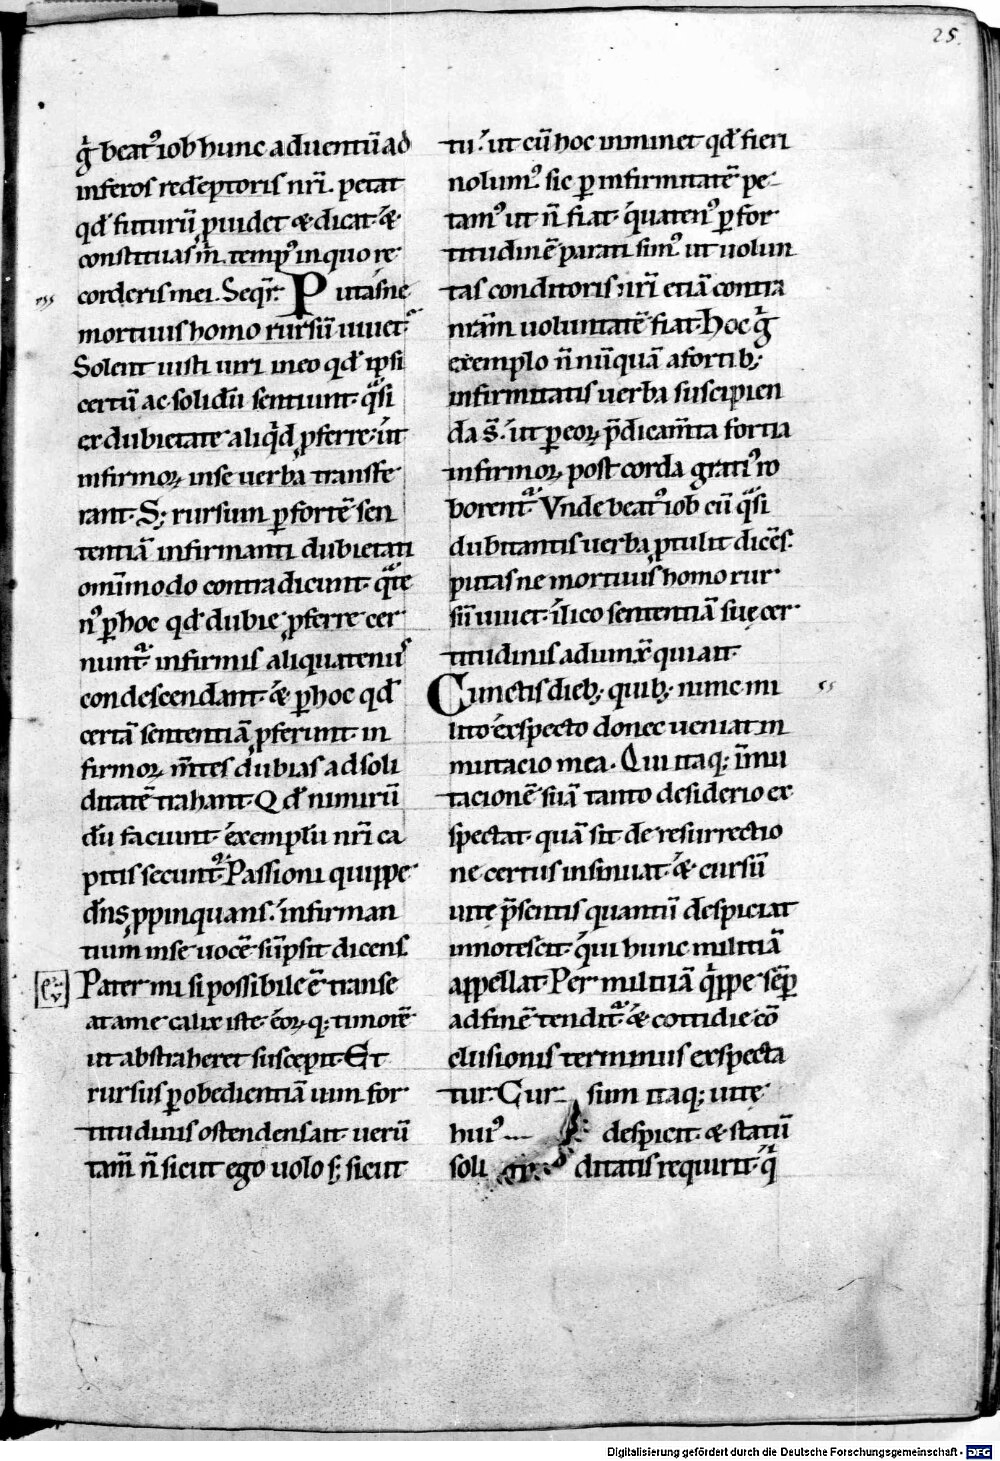 25.
gͥ beatꝰ iob hunc aduentū ad
inferos redēptoris nr̄i. petat
qd̄ futurū ꝓuidet & dicat. &
constituas m̄. tempꝰ in quo re
corderis mei. Seqr̄. Putasne
mortuus homo rursū uiuet.
Solent iusti uiri in eo qd̄ ipsi
certū ac solidū sentiunt. qᷓsi
ex dubietate aliqͥd ꝓferre. ut
infirmoꝝ in se uerba transfe
rant. S; rursum ꝑ fortē sen
tentiā infirmanti dubietati
omīmodo contradicunt. qᷓte
nꝰ ꝑ hoc qd̄ dubie ꝓferre cer
nunt᷑. infirmis aliquatenus
condescendant. & ꝑ hoc qd̄
certā sententiā ꝓferunt. in
firmoꝝ m̄tes dubias ad soli
ditatē trahant. Qd̄ nimirū
dū faciunt. exemplū nr̄i ca
pitis secunt᷑. Passioni quippe
dn̄s ꝓpinquans. infirman
tium in se uocē sūpsit dicens.
Pater mi si possibile ē transe
at a me calix iste. eoꝝ q; timorē
ut abstraheret suscepit. Et
rursus ꝑ obedientiā uim for
titudinis ostendens ait. uerū
tam̄ n̄ sicut ego uolo s; sicut
tu. ut cū hoc imminet qd̄ fieri
nolumꝰ. sic ꝑ infirmitatē pe-
tamꝰ ut n̄ fiat. qᷓtenꝰ ꝑ for
titudinē parati simꝰ. ut uolun
tas conditoris nr̄i etiā contra
nr̄am uoluntatē fiat. Hoc gͥ
exemplo n̄ nūquā a fortib;
infirmitatis uerba suscipien
da s̄. ut ꝑ eoꝝ p̄dicam̄ta fortia
infirmoꝝ post corda gratiꝰ ro
borent᷑. Vnde beatꝰ iob cū qᷓsi
dubitantis uerba ꝓtulit dicēs.
putasne mortuus homo rur
sū uiuet. ilico sententiā suę cer
titudinis adiunx̄ qui ait.
Cunctis dieb; quib; nunc mi
lito exspecto donec ueniat in
mutacio mea. Qui itaq; īmu
tacionē suā tanto desiderio ex
spectat. quā sit de resurrectio
ne certus insinuat. & cursū
uitę p̄sentis quantū despiciat
innotescit. qui hunc militiā
appellat. Per militiā qͥppe sēꝑ
ad finē tendit᷑. & cottidie cō
clusionis terminus exspecta
tur. Cursum itaq; uitę
huiꝰ despicit. & statū
soliditatis requirit. qͥ